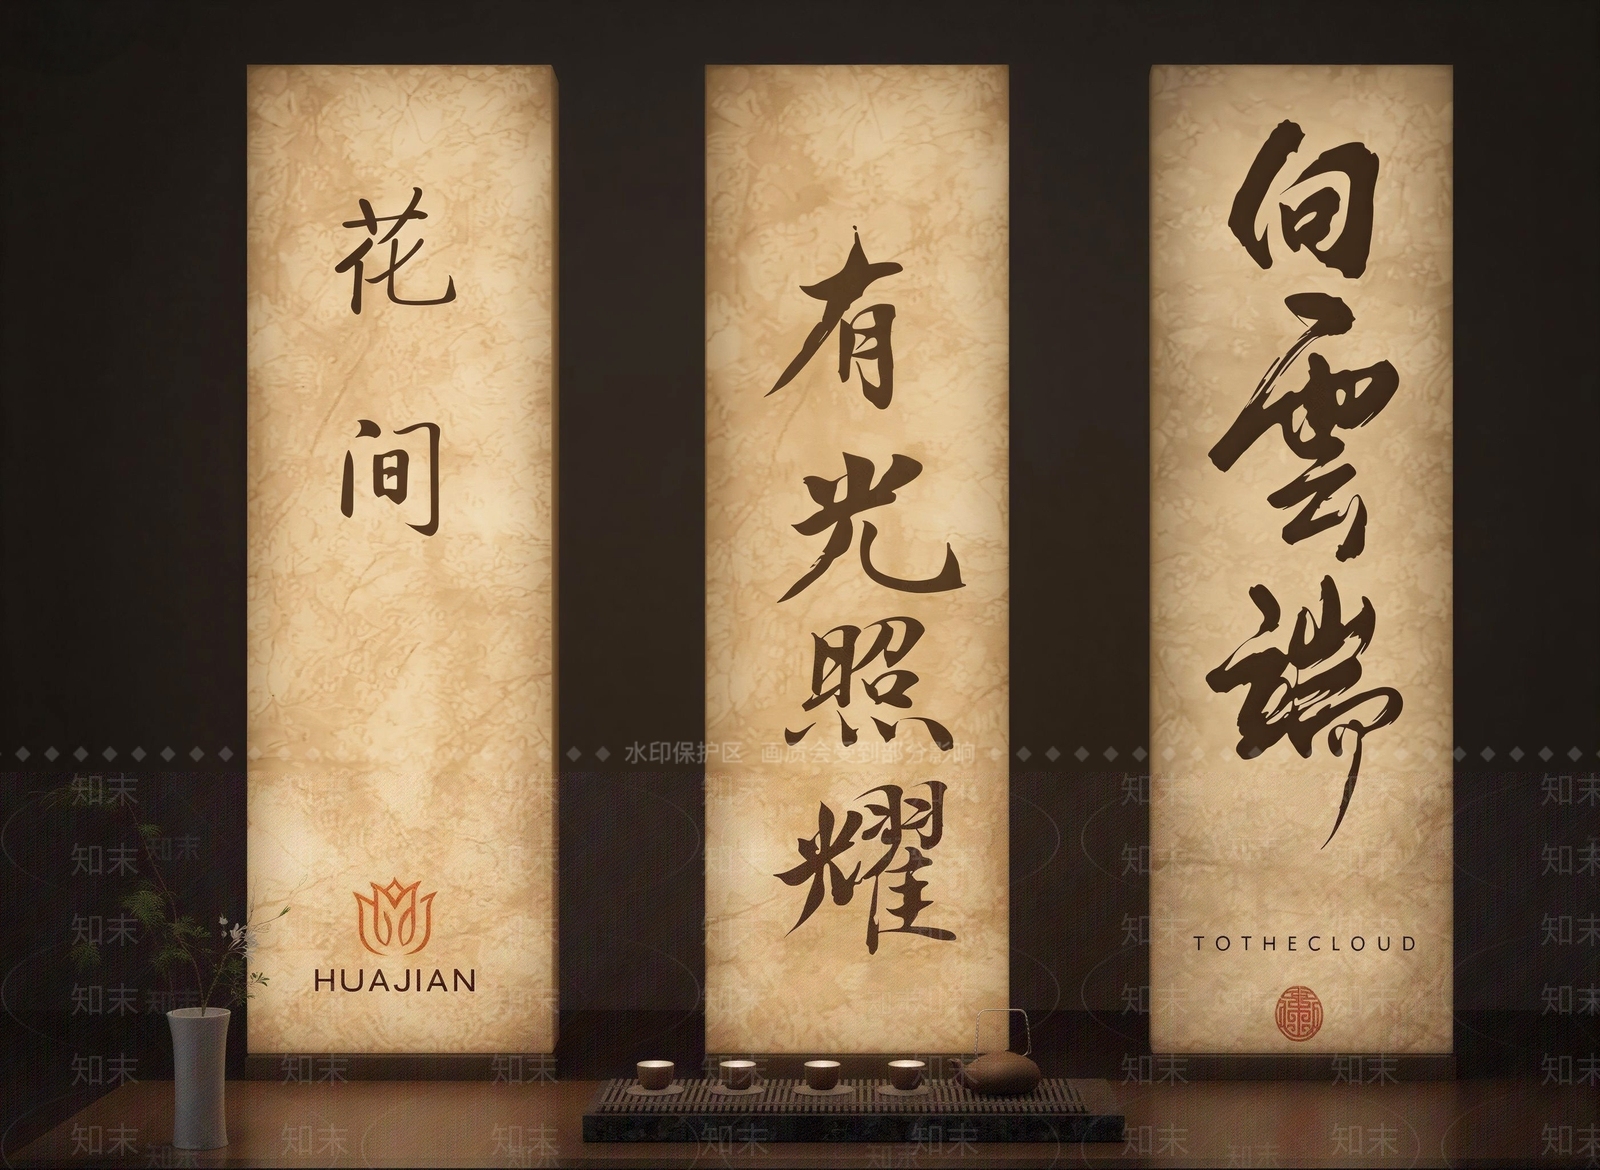 花间
HUAJIAN
有光照耀
向雲端
TOTHECLOUD
水印保护区 画质会受到部分影响
知末